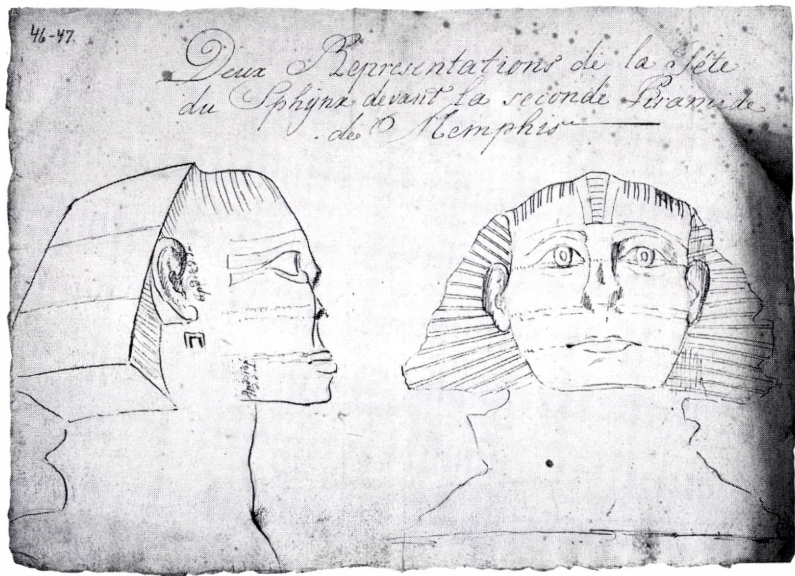 46-47.
Deux Representations de la Téte
du Sphynx devant la seconde Piramide
de Memphis